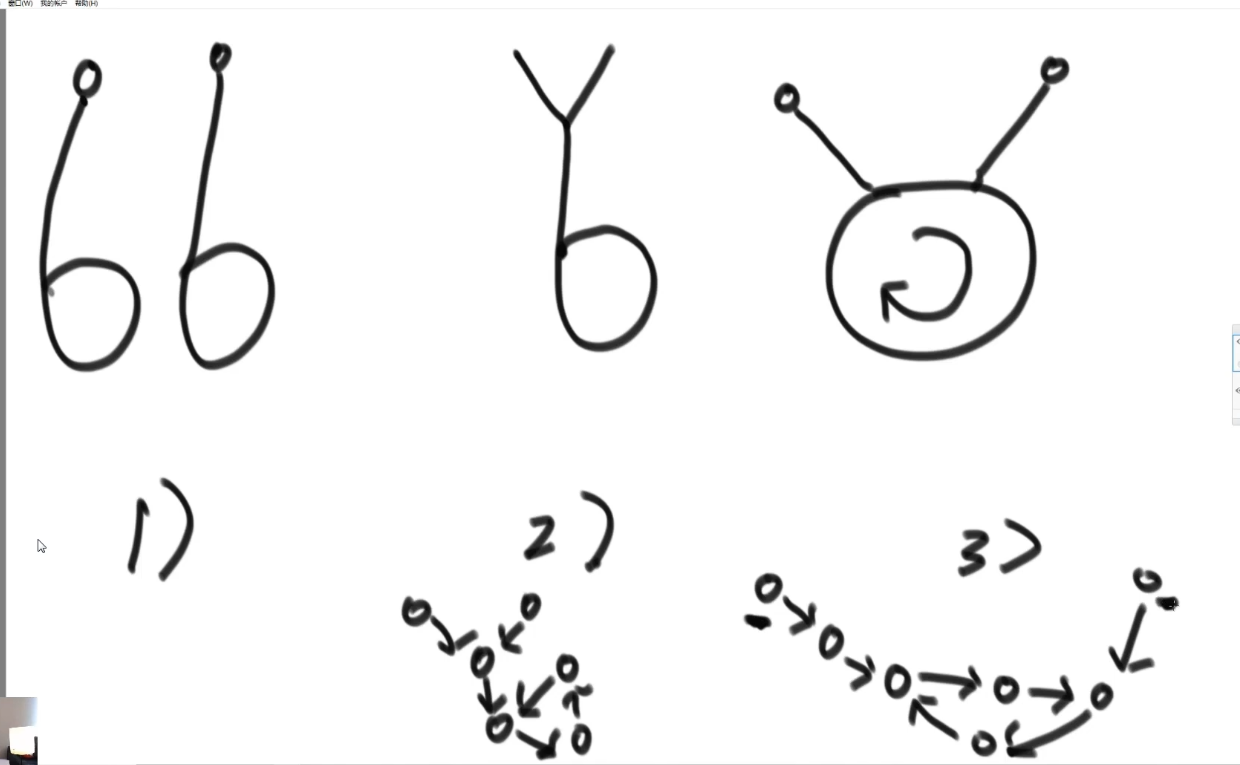 窗口(W) 我的帐户 帮助(H)
1) 2) 3)